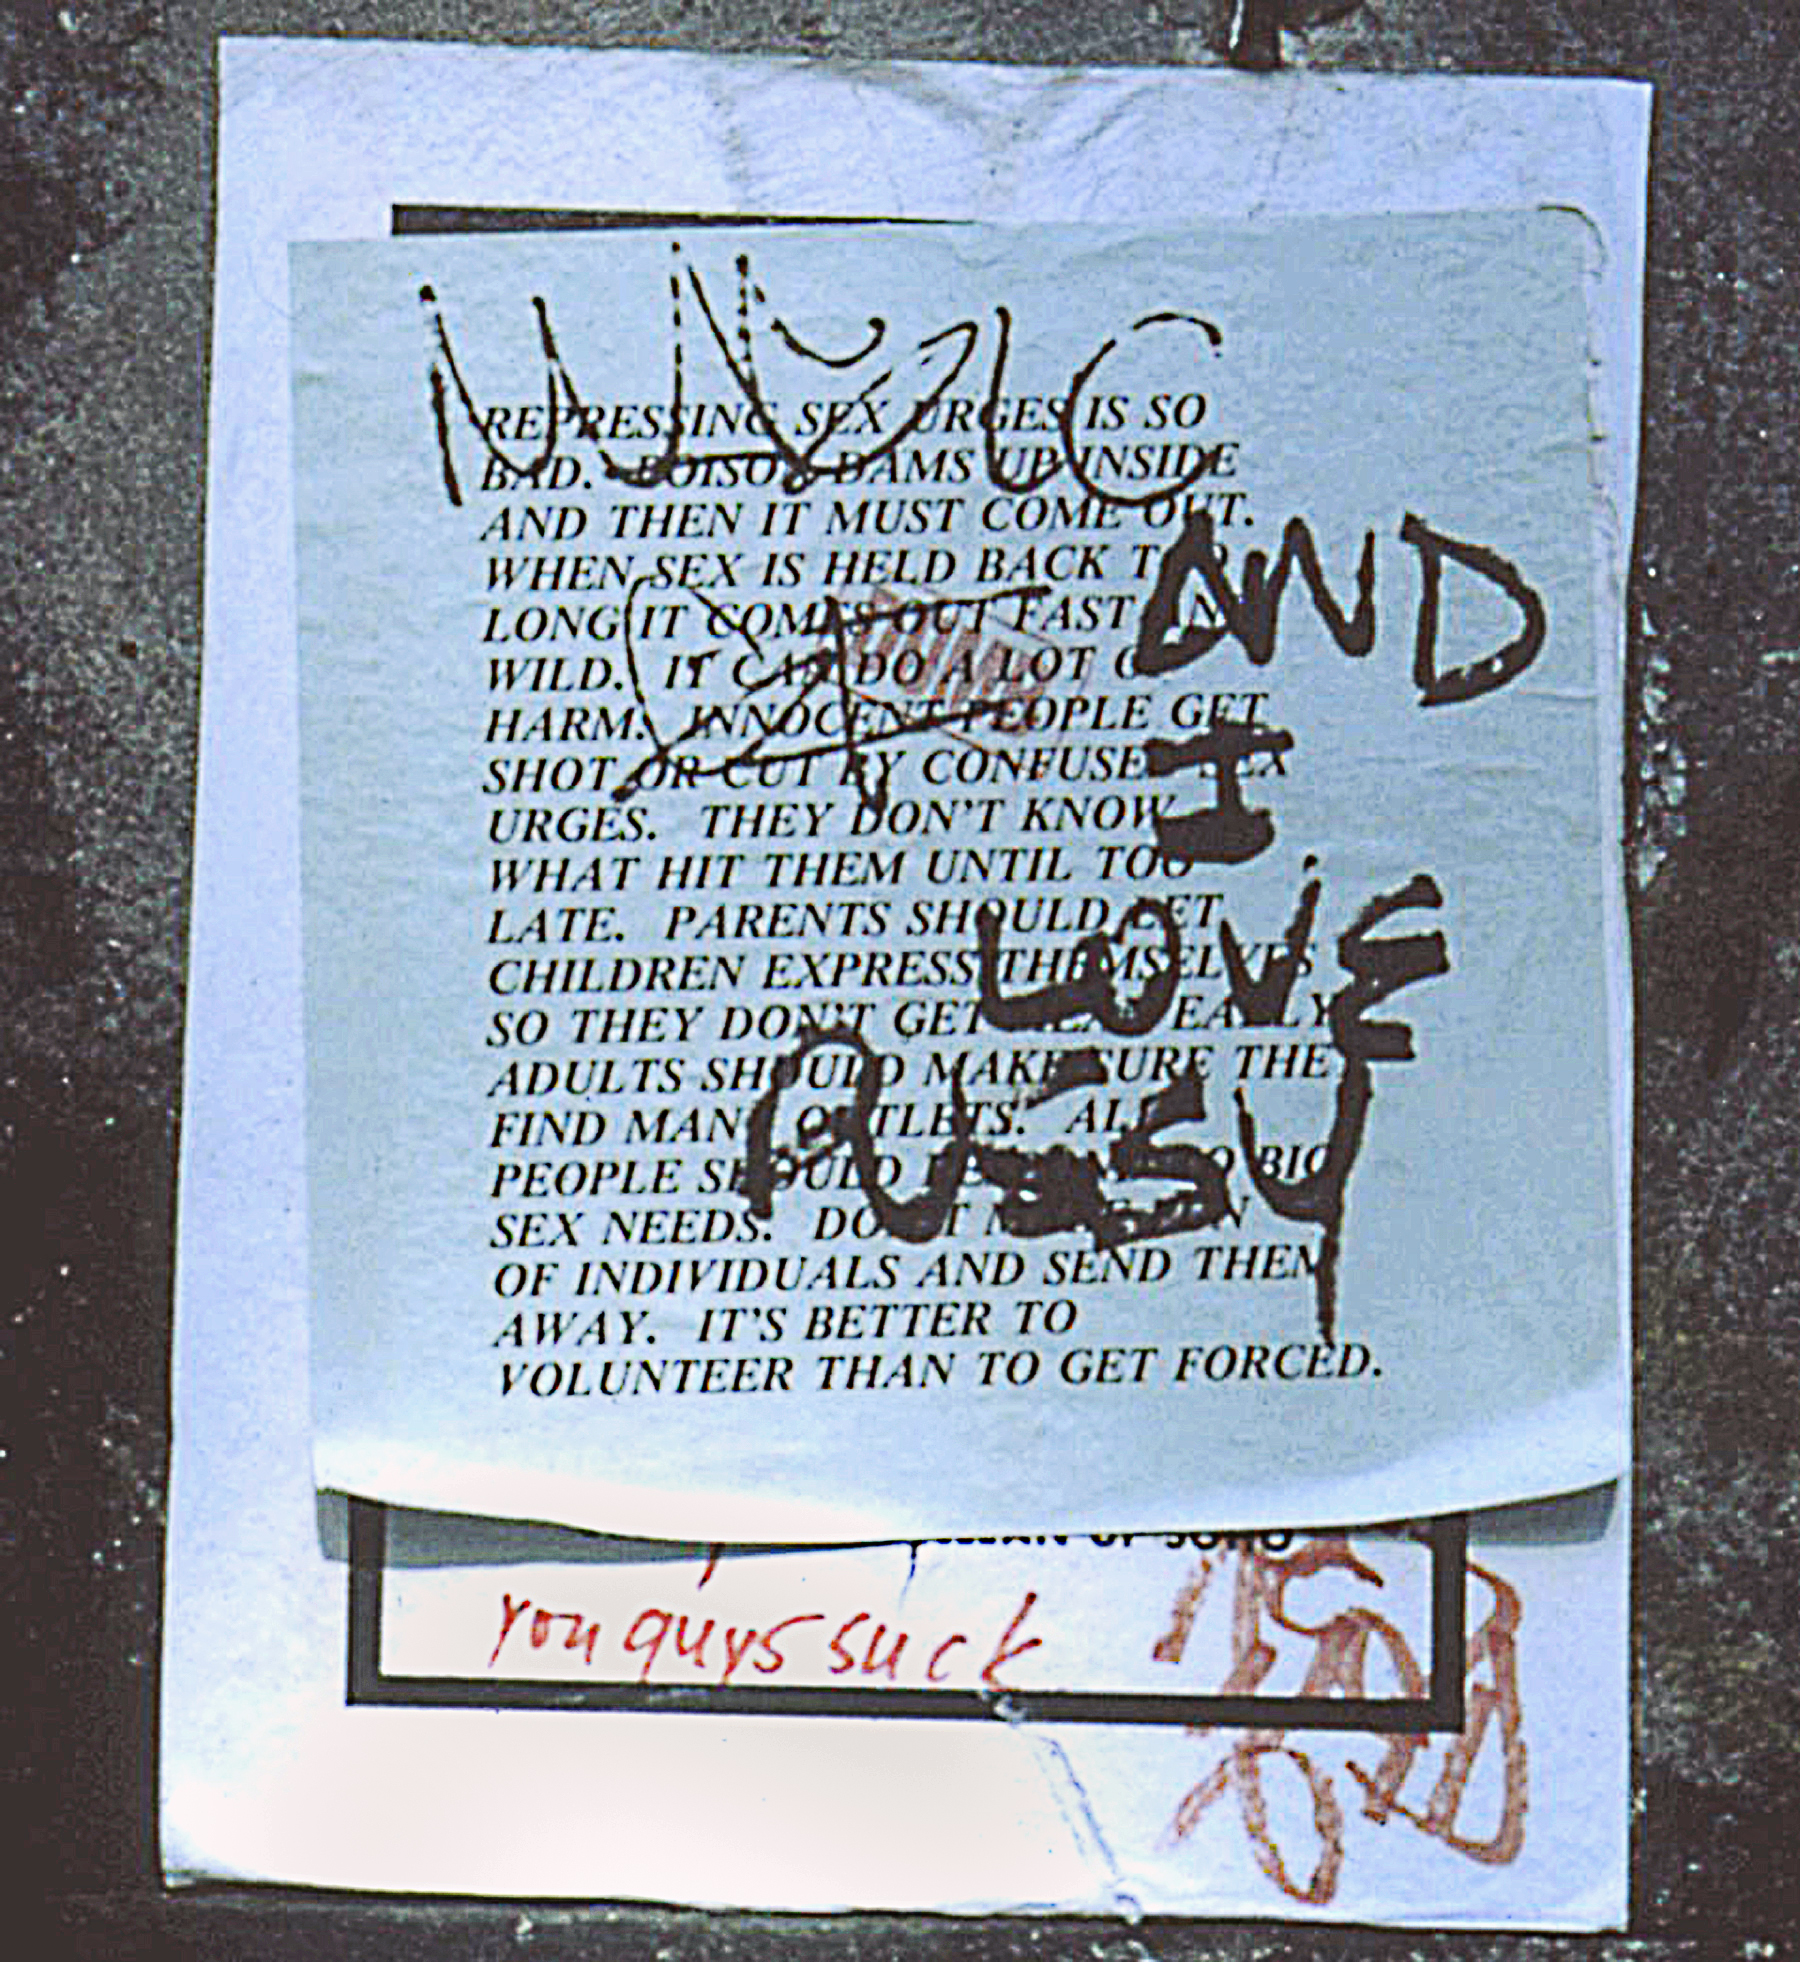 REPRESSING SEX URGES IS SO
BAD. POISON DAMS UP INSIDE
AND THEN IT MUST COME OUT.
WHEN SEX IS HELD BACK TOO
LONG IT COMES OUT FAST AND
WILD. IT CAN DO A LOT OF
HARM. INNOCENT PEOPLE GET
SHOT OR CUT BY CONFUSED SEX
URGES. THEY DON'T KNOW
WHAT HIT THEM UNTIL TOO
LATE. PARENTS SHOULD LET
CHILDREN EXPRESS THEMSELVES
SO THEY DON'T GET MEAN EARLY.
ADULTS SHOULD MAKE SURE THEY
FIND MANY OUTLETS. ALL
PEOPLE SHOULD BIG
SEX NEEDS. DON'T
OF INDIVIDUALS AND SEND THEM
AWAY. IT'S BETTER TO
VOLUNTEER THAN TO GET FORCED.
AND
I
LOVE
PUSSY
OF SOHO
you guys suck